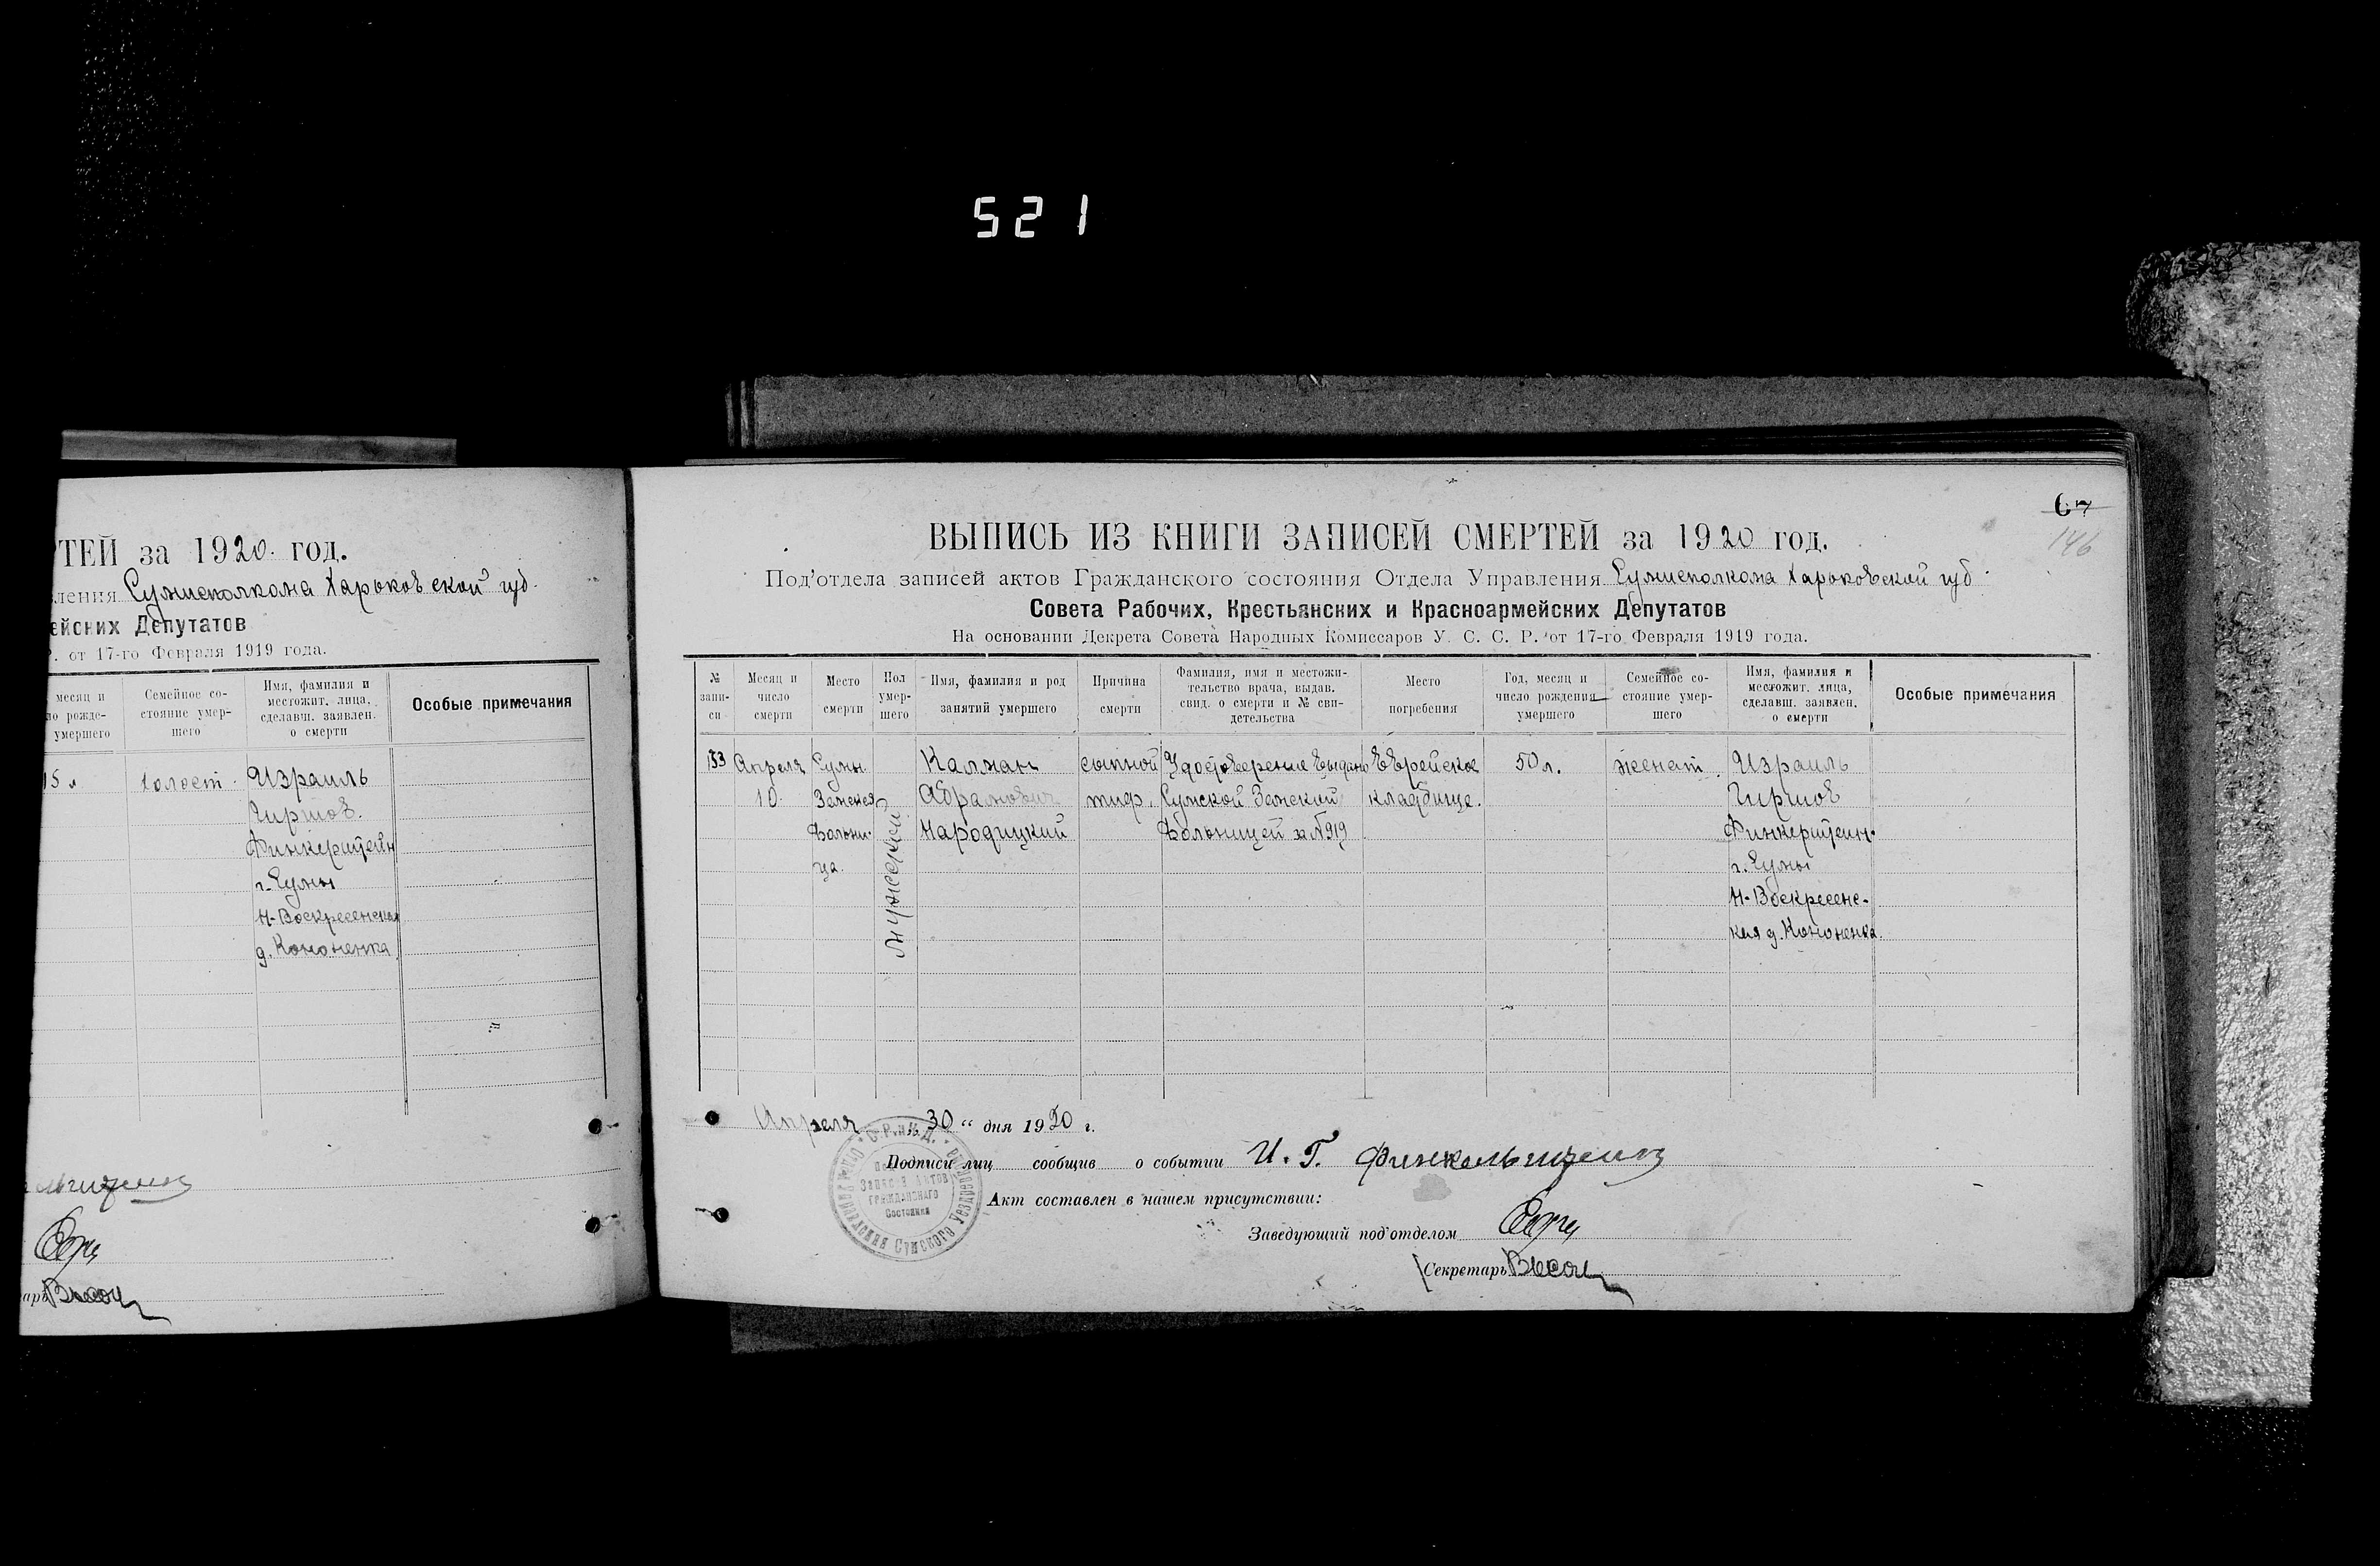 521
ТЕЙ за 1920. год.
ления Сумисполкома Харьковской губ.
ейских Депутатов
Р. от 17-го Февраля 1919 года.
месяц и
ло рожде-
умершего
Семейное со-
стояние умер-
шего
Имя, фамилия и
местожит. лица,
сделавш. заявлен.
о смерти
Особые примечания
15 л
холост.
Израиль
Гиршов.
Финкерштейн
г. Сумы
Н-Воскресенская
д. Кононенка
67
146
ВЫПИСЬ ИЗ КНИГИ ЗАПИСЕЙ СМЕРТЕЙ за 1920 год.
Под'отдела записей актов Гражданского состояния Отдела Управления Сумисполкома Харьковской губ.
Совета Рабочих, Крестьянских и Красноармейских Депутатов
На основании Декрета Совета Народных Комиссаров У. С. С. Р. от 17-го Февраля 1919 года.
№
запи-
си
Месяц и
число
смерти
Место
смерти
Пол
умер-
шего
Имя, фамилия и род
занятий умершего
Причина
смерти
Фамилия, имя и местожи-
тельство врача, выдав.
свид. о смерти и № сви-
детельства
Место
погребения
Год, месяц и
число рождения
умершего
Семейное со-
стояние умер-
шего
Имя, фамилия и
местожит. лица,
сделавш. заявлен.
о смерти
Особые примечания
153
Апреля
10.
Сумы.
Земская
больни-
ца.
мужской
Калман
Абрамович
Народицкий
сыпной
тиф.
Удостоверение выдано
Сумской Земской
больницей за №919
Еврейское
кладбище.
50 л.
женат.
Израиль
Гиршов
Финкерштейн.
г. Сумы
Н-Воскресенс-
кая д. Кононенка.
Апреля „30“ дня 1920 г.
Подписи лиц сообщив о событии И. Г. Финкельштейн
Акт составлен в нашем присутствии:
Заведующий под'отделом
Секретарь
Записей Актов
Гражданскаго
Состояния